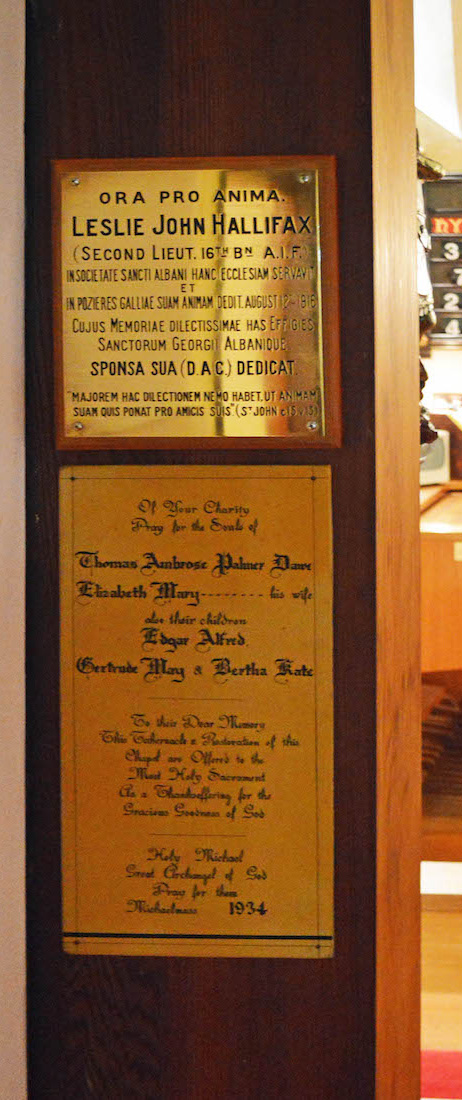 ORA PRO ANIMA.
LESLIE JOHN HALLIFAX
(SECOND LIEUT. 16TH BN A.I.F.)
IN SOCIETATE SANCTI ALBANI HANC ECCLESIAM SERVAVIT
ET
IN POZIERES GALLIAE SUAM ANIMAM DEDIT. AUGUST 12TH 1916
CUJUS MEMORIAE DILECTISSIMAE HAS EFFIGIES
SANCTORUM GEORGII ALBANIQUE
SPONSA SUA (D.A.C.) DEDICAT.
"MAJOREM HAC DILECTIONEM NEMO HABET, UT ANIMAM
SUAM QUIS PONAT PRO AMICIS SUIS" (ST JOHN c 15. v 13)
Of Your Charity
Pray for the Souls of
Thomas Ambrose Palmer Dawe
Elizabeth Mary -------- his wife
also their children
Edgar Alfred,
Gertrude May & Bertha Kate
To their Dear Memory
This Tabernacle & Restoration of this
Chapel are Offered to the
Most Holy Sacrament
As a Thankoffering for the
Gracious Goodness of God
Holy Michael
Great Archangel of God
Pray for them
Michaelmass 1934
3
7
2
2
4